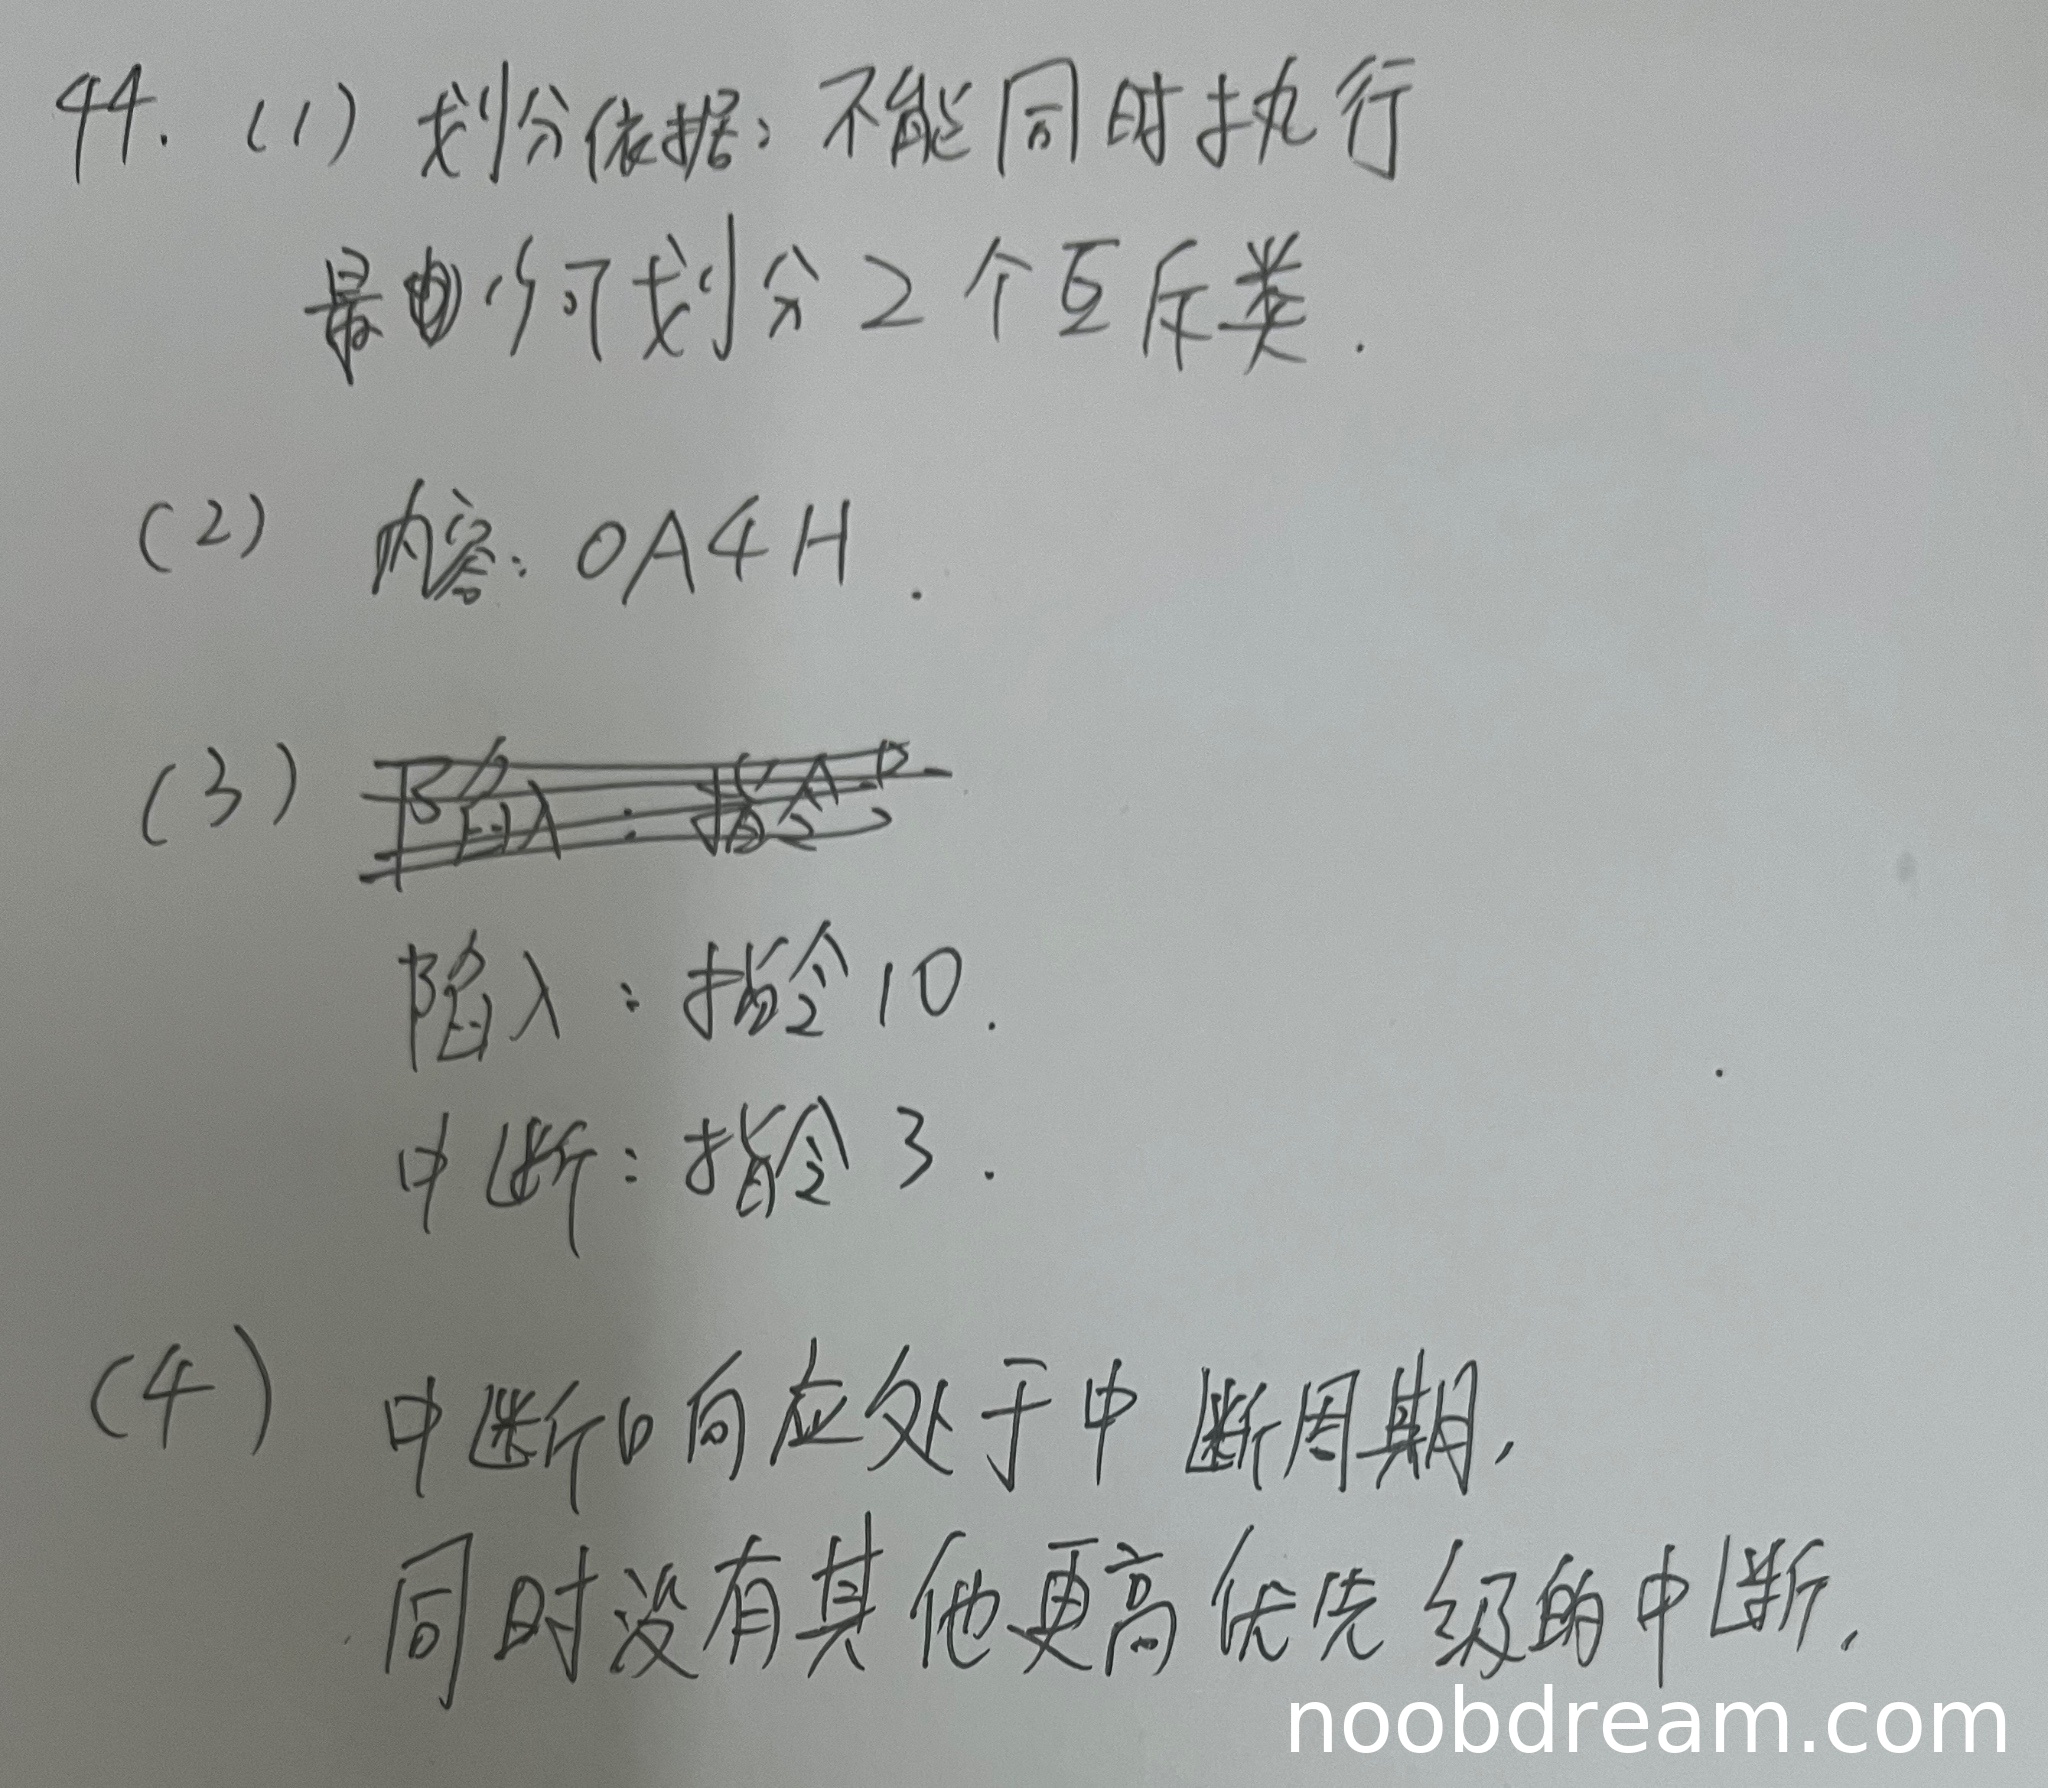 44. (1) 划分依据: 不能同时执行
最少可划分2个互斥类.
(2) 内容: 0A4H.
(3)
陷入: 指令10.
中断: 指令3.
(4) 中断响应处于中断周期,
同时没有其他更高优先级的中断.
noobdream.com